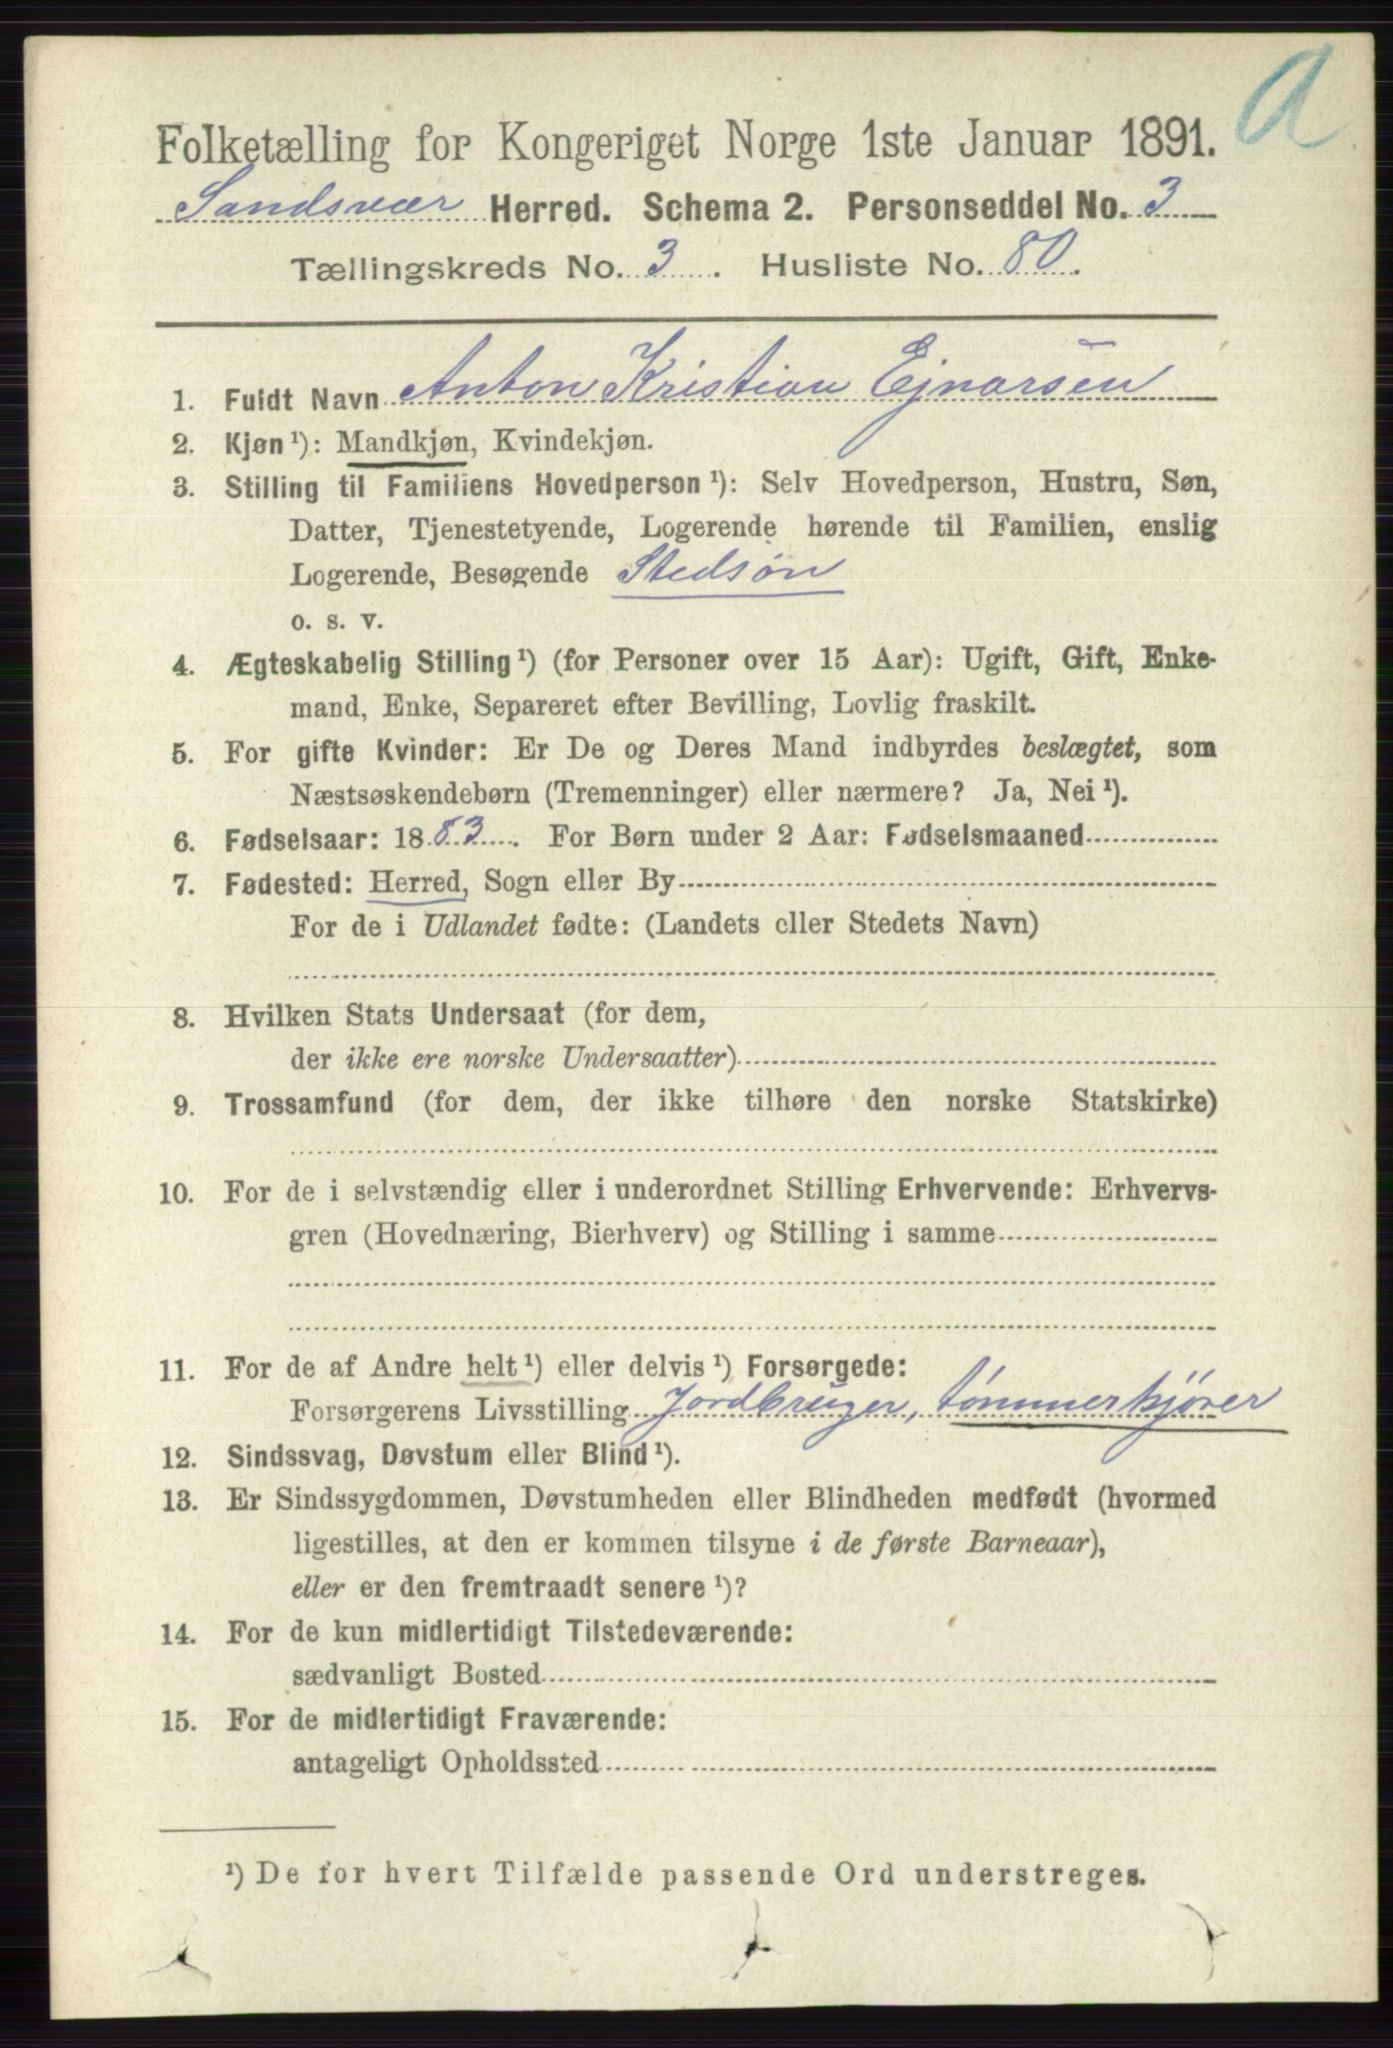 A
Folketælling for Kongeriget Norge 1ste Januar 1891.
Sandsvær Herred. Schema 2. Personseddel No. 3
Tællingskreds No. 3. Husliste No. 80.
1. Fuldt Navn Anton Kristian Ejnarsen
2. Kjøn¹): Mandkjøn, Kvindekjøn.
3. Stilling til Familiens Hovedperson¹): Selv Hovedperson, Hustru, Søn,
Datter, Tjenestetyende, Logerende hørende til Familien, enslig
Logerende, Besøgende Stedsøn
o. s. v.
4. Ægteskabelig Stilling¹) (for Personer over 15 Aar): Ugift, Gift, Enke-
mand, Enke, Separeret efter Bevilling, Lovlig fraskilt.
5. For gifte Kvinder: Er De og Deres Mand indbyrdes beslægtet, som
Næstsøskendebørn (Tremenninger) eller nærmere? Ja, Nei¹).
6. Fødselsaar: 1883. For Børn under 2 Aar: Fødselsmaaned
7. Fødested: Herred, Sogn eller By
For de i Udlandet fødte: (Landets eller Stedets Navn)
8. Hvilken Stats Undersaat (for dem,
der ikke ere norske Undersaatter)
9. Trossamfund (for dem, der ikke tilhøre den norske Statskirke)
10. For de i selvstændig eller i underordnet Stilling Erhvervende: Erhvervs-
gren (Hovednæring, Bierhverv) og Stilling i samme
11. For de af Andre helt¹) eller delvis¹) Forsørgede:
Forsørgerens Livsstilling Jordbruger, tømmerkjører
12. Sindssvag, Døvstum eller Blind¹).
13. Er Sindssygdommen, Døvstumheden eller Blindheden medfødt (hvormed
ligestilles, at den er kommen tilsyne i de første Barneaar),
eller er den fremtraadt senere¹)?
14. For de kun midlertidigt Tilstedeværende:
sædvanligt Bosted
15. For de midlertidigt Fraværende:
antageligt Opholdssted
¹) De for hvert Tilfælde passende Ord understreges.